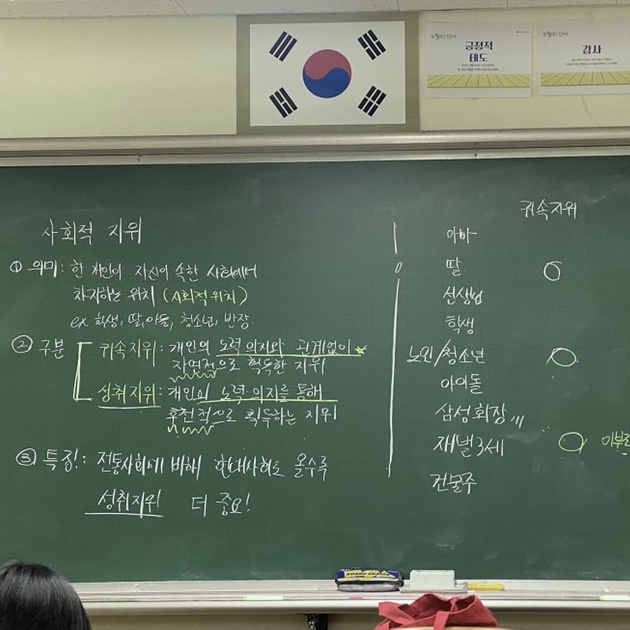 긍정적
태도
감사
사회적 지위
① 의미: 한 개인이 자신이 속한 사회에서
차지하는 위치 (사회적 위치)
ex. 학생, 딸, 아들, 청소년, 반장
② 구분
귀속지위: 개인의 노력·의지와 관계없이
자연적으로 획득한 지위
성취지위: 개인의 노력·의지를 통해
후천적으로 획득하는 지위
③ 특징: 전통사회에 비해 현대사회로 올수록
성취지위 더 중요!
귀속지위
아빠
딸
선생님
학생
노인/청소년
아이돌
삼성회장
재벌3세
건물주